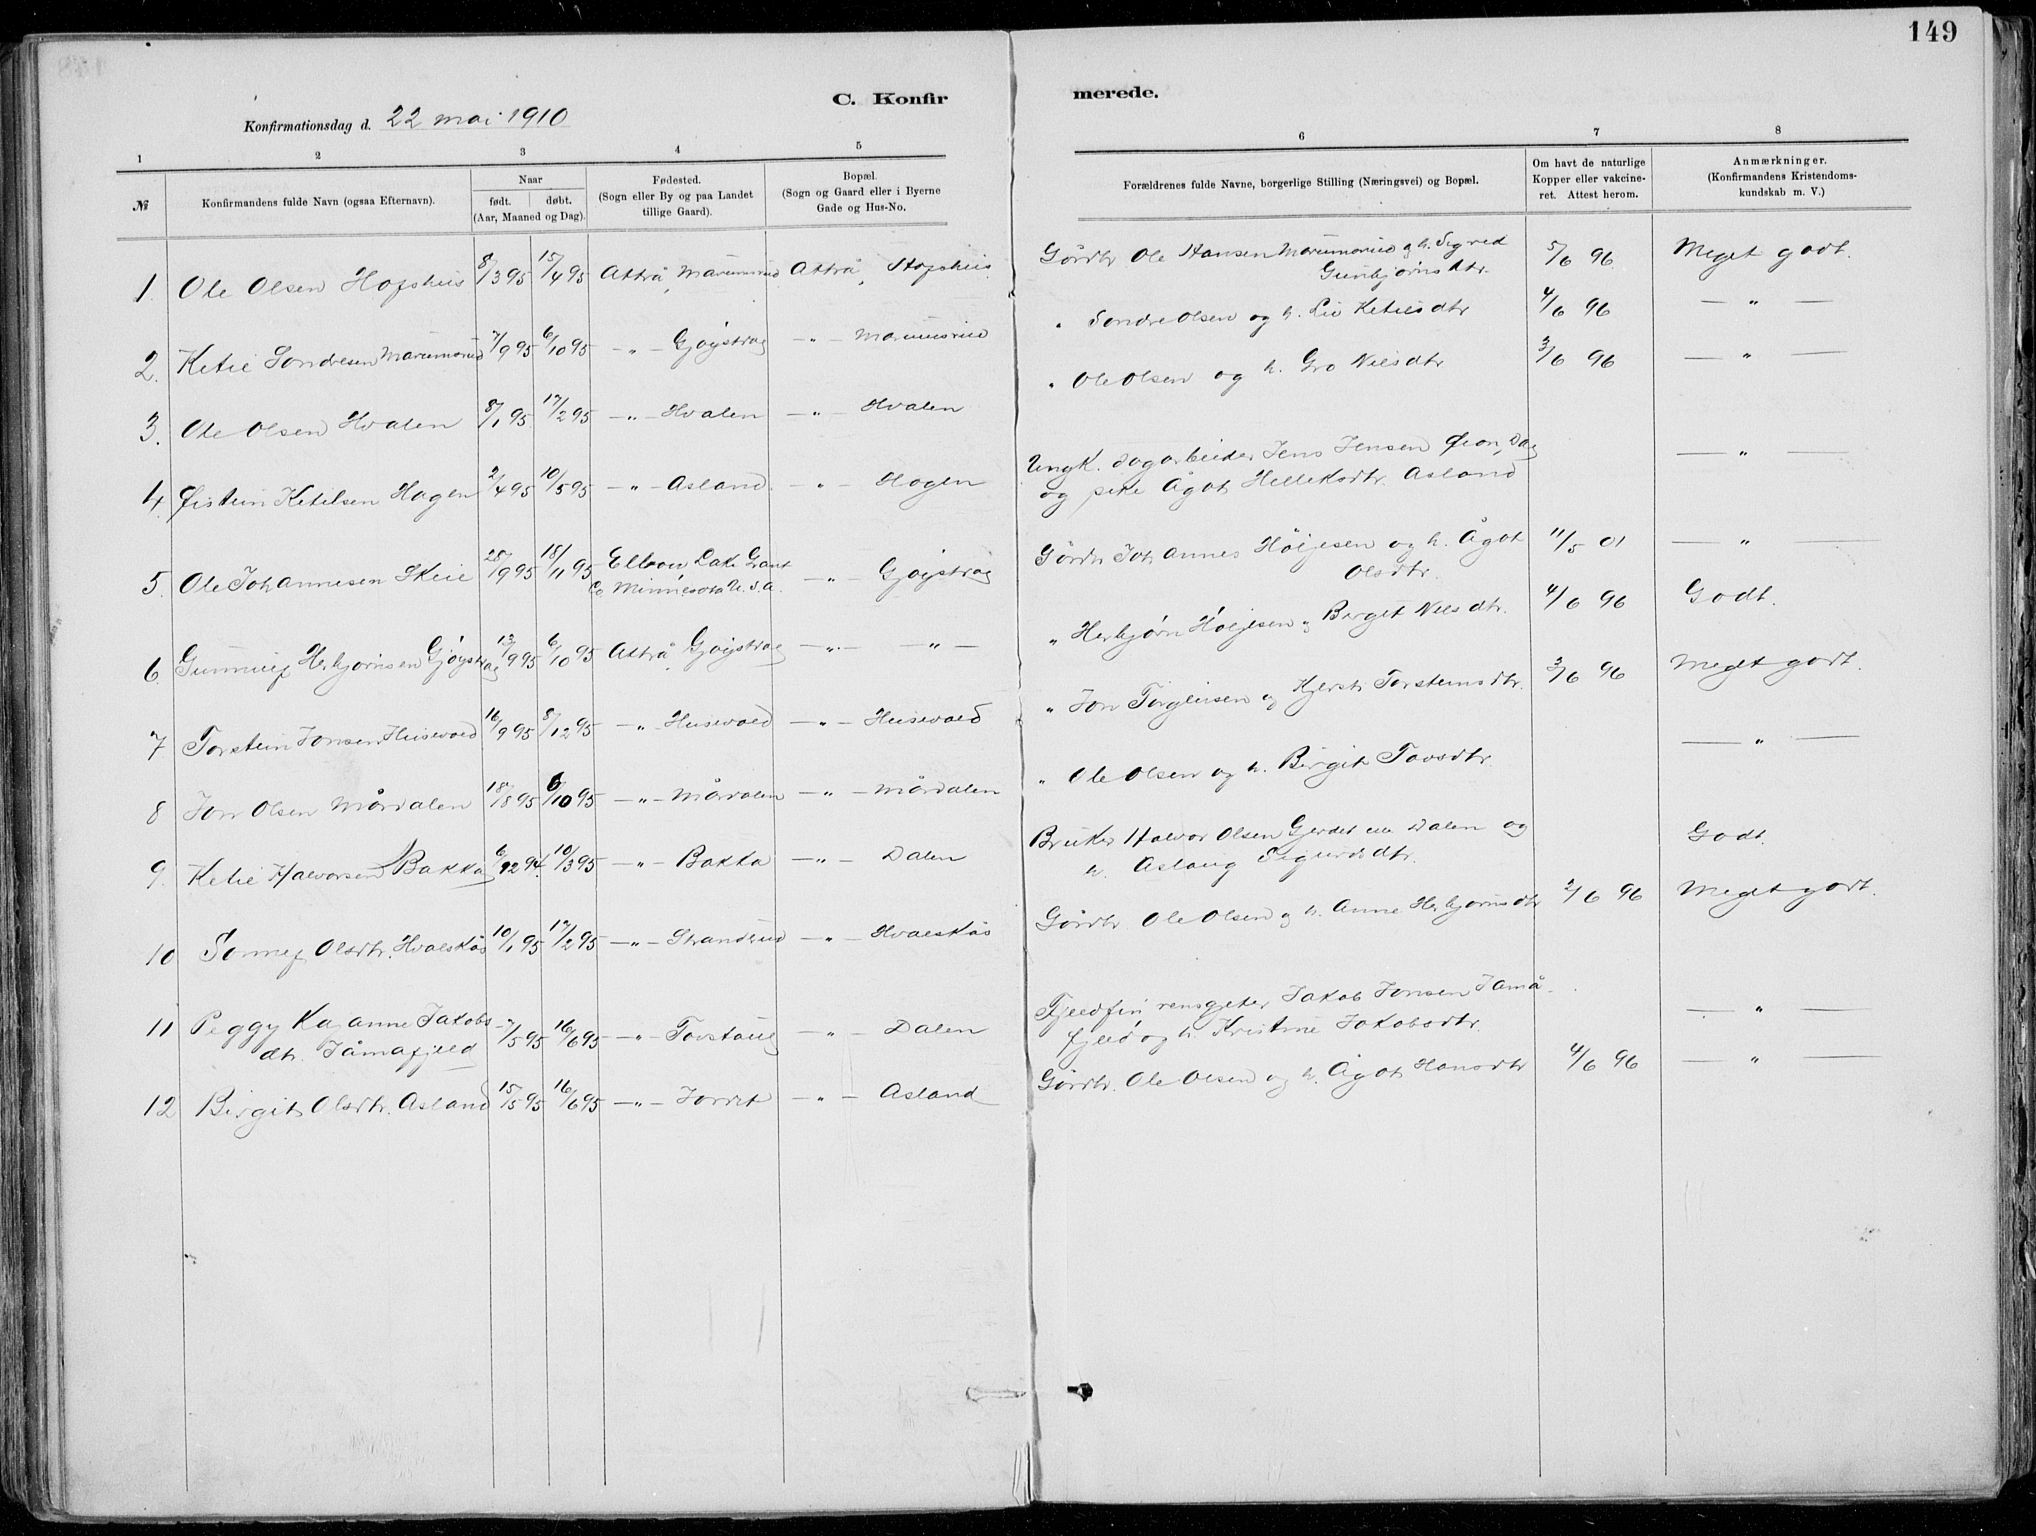 149
C. Konfirmerede.
Konfirmationsdag d. 22 mai 1910
1 2 3 4 5 6 7 8
№ | Konfirmandens fulde Navn (ogsaa Efternavn). | Naar født. døbt. (Aar, Maaned og Dag). | Fødested. (Sogn eller By og paa Landet tillige Gaard). | Bopæl. (Sogn og Gaard eller i Byerne Gade og Hus-No. | Forældrenes fulde Navne, borgerlige Stilling (Næringsvei) og Bopæl. | Om havt de naturlige Kopper eller vakcineret. Attest herom. | Anmærkninger. (Konfirmandens Kristendomskundskab m. V.)
1. Ole Olsen Hofshus 8/3 95 15/4 95 Attrå, Marumsrud Attrå, Hofshus Gårdbr Ole Hansen Marumsrud og h. Sigrid Gunbjørnsdtr. 5/6 96 Meget godt.
2. Ketil Sondresen Marumsrud 7/9 95 6/10 95 — " — Gjøystrag — " — Marumsrud " Sondre Olsen og h. Liv Ketilsdtr 4/6 96 — " —
3. Ole Olsen Hvalen 8/1 95 17/2 95 — " — Hvalen — " — Hvalen " Ole Olsen og h. Gro Nilsdtr 3/6 96 — " —
4. Øistein Ketilsen Hagen 2/4 95 10/5 95 — " — Asland — " — Hagen Ungk. dagarbeider Jens Jensen Øian, Dag og pike Ågot Helleksdtr. Asland — " —
5. Ole Johannesen Skeie 25/9 95 18/11 95 Elbow Lake Grant Co Minnesota U.S.A. — " — Gjøystrag Gårdbr Johannes Høljesen og h. Ågot Olsdtr. 11/5 01 — " —
6. Gunnulf Herbjørnsen Gjøystrag 13/9 95 6/10 95 Attrå, Gjøystrag — " — — " — " Herbjørn Høljesen og Birgit Nilsdtr. 4/6 96 Godt.
7 Torstein Jonsen Husevold 16/9 95 8/12 95 — " — Husevold — " — Husevold " Jon Torgeirsen og Kjersti Torsteinsdtr. 3/6 96 Meget godt.
8 Jon Olsen Mårdalen 18/8 95 6/10 95 — " — Mårdalen — " — Mårdalen " Ole Olsen og h. Birgit Tovsdtr. — " —
9. Ketil Halvorsen Bakka 6/12 94. 10/3 95 — " — Bakka — " — Dalen Bruker Halvor Olsen Gjerdet ell Dalen og h. Aslaug Sigurdsdtr. Godt.
10 Sonnef Olsdtr. Hvalskås 10/1 95 17/2 95 — " — Strandrud — " — Hvalskås Gårdbr Ole Olsen og h. Anne Herbjørnsdtr 2/6 96 Meget godt.
11 Peggy Kajanne Jakobsdtr. Jåmafjeld 7/5 95 16/6 95 — " — Torstaug — " — Dalen Fjeldfin rensgjeter Jakob Jonsen Jåmåfjeld og h. Kristine Jakobsdtr. — " —
12 Birgit Olsdtr. Asland 15/5 95 16/6 95 — " — Jordet — " — Asland Gårdbr. Ole Olsen og h. Ågot Hansdtr 4/6 96 — " —